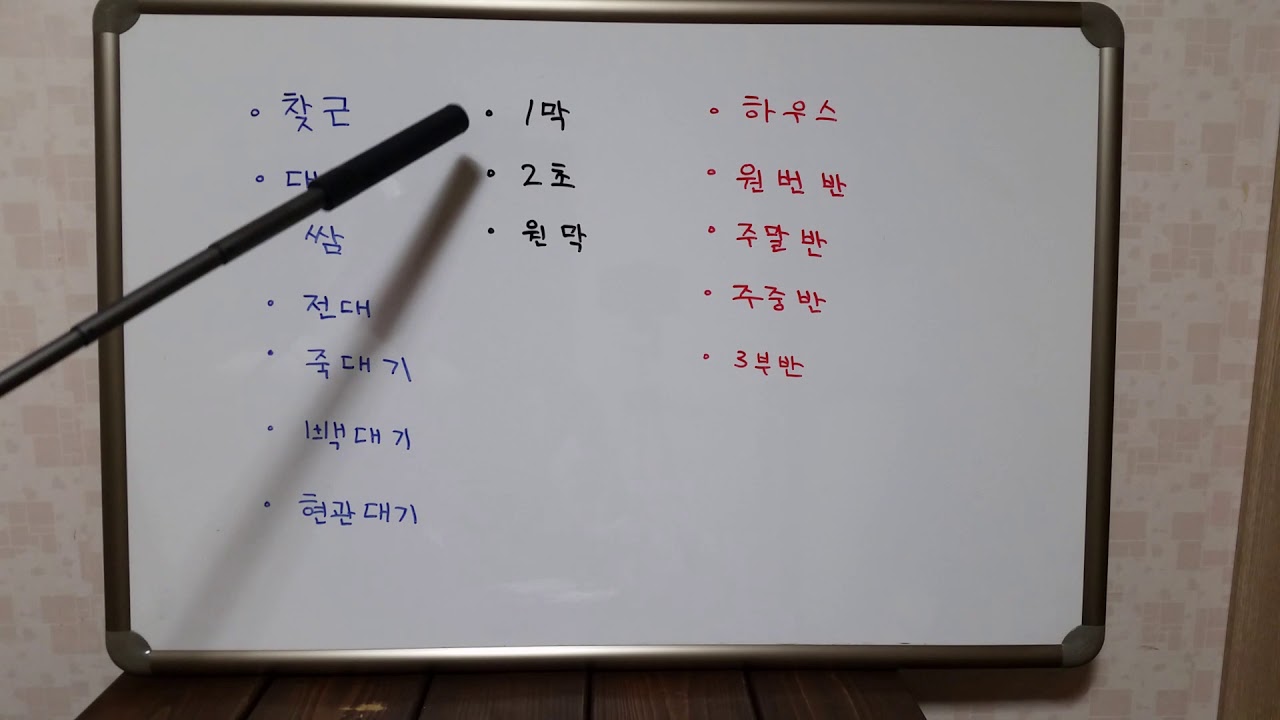 찾근
1막
2초
원막
쌈
전대
죽대기
빽대기
현관대기
하우스
원번반
주말반
주중반
3부반